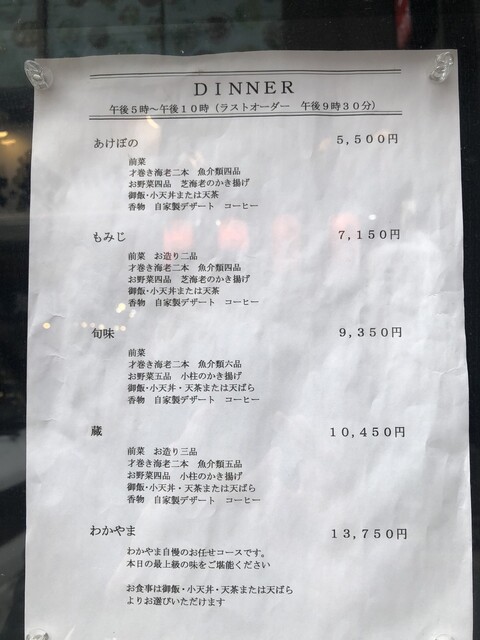 DINNER
午後5時～午後10時（ラストオーダー　午後9時30分）
あけぼの　5,500円
前菜
才巻き海老二本　魚介類四品
お野菜四品　芝海老のかき揚げ
御飯・小天丼または天茶
香物　自家製デザート　コーヒー
もみじ　7,150円
前菜　お造り二品
才巻き海老二本　魚介類四品
お野菜四品　芝海老のかき揚げ
御飯・小天丼または天茶
香物　自家製デザート　コーヒー
旬味　9,350円
前菜
才巻き海老二本　魚介類六品
お野菜五品　小柱のかき揚げ
御飯・小天丼・天茶または天ばら
香物　自家製デザート　コーヒー
蔵　10,450円
前菜　お造り三品
才巻き海老二本　魚介類五品
お野菜四品　小柱のかき揚げ
御飯・小天丼・天茶または天ばら
香物　自家製デザート　コーヒー
わかやま　13,750円
わかやま自慢のお任せコースです。
本日の最上級の味をご堪能ください
お食事は御飯・小天丼・天茶または天ばら
よりお選びいただけます